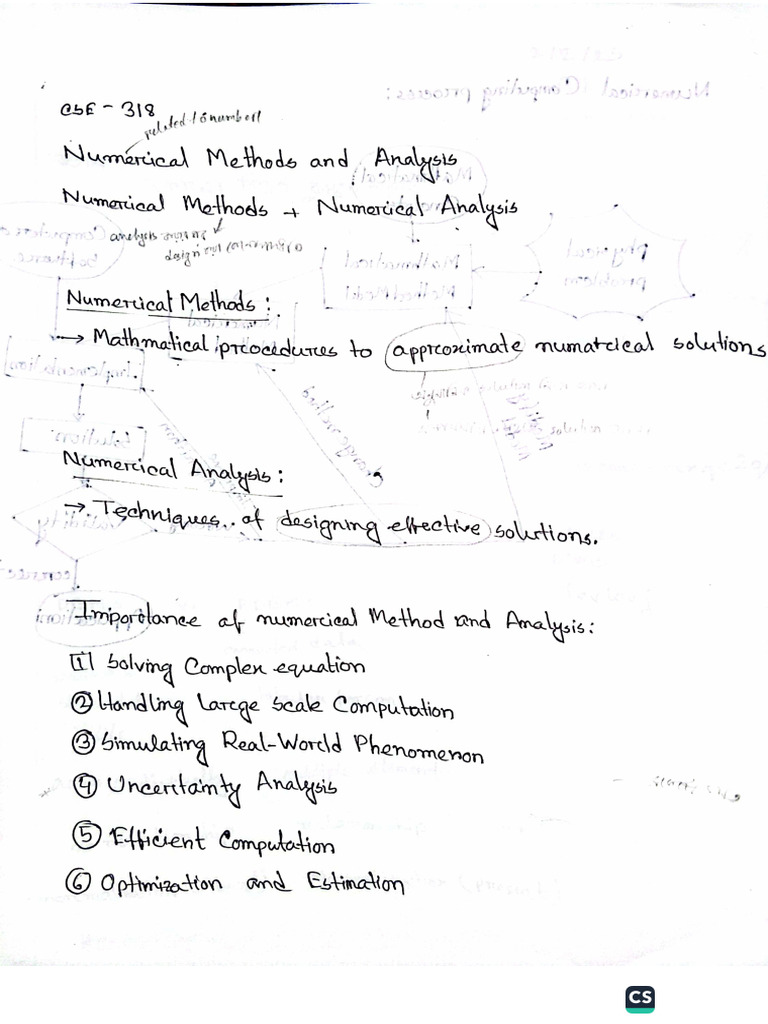 CSE - 318
related to number
Numerical Methods and Analysis
Numerical Methods + Numerical Analysis
analysis
design
Numerical Methods:
→ Mathmatical procedures to approximate numarcical solutions
Numerical Analysis:
→ Techniques of designing effective solutions.
Importance of numerical Method and Analysis:
① Solving Complex equation
② Handling Large Scale Computation
③ Simulating Real-World Phenomenon
④ Uncertainty Analysis
⑤ Efficient Computation
⑥ Optimization and Estimation
CS